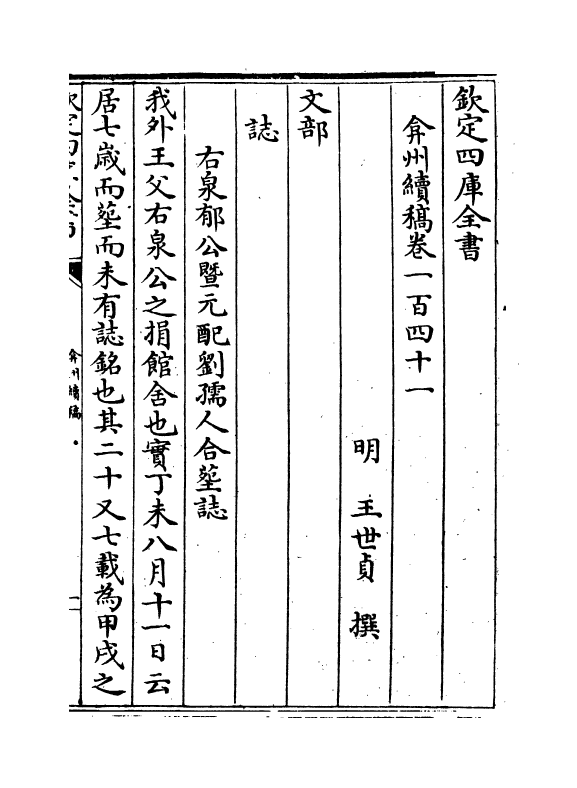 欽定四庫全書
弇州續稿卷一百四十一
明　王世貞　撰
文部
誌
右泉郁公暨元配劉孺人合塟誌
我外王父右泉公之捐館舍也實丁未八月十一日云
居七歲而塟而未有誌銘也其二十又七載為甲戌之
弇州續稿
一